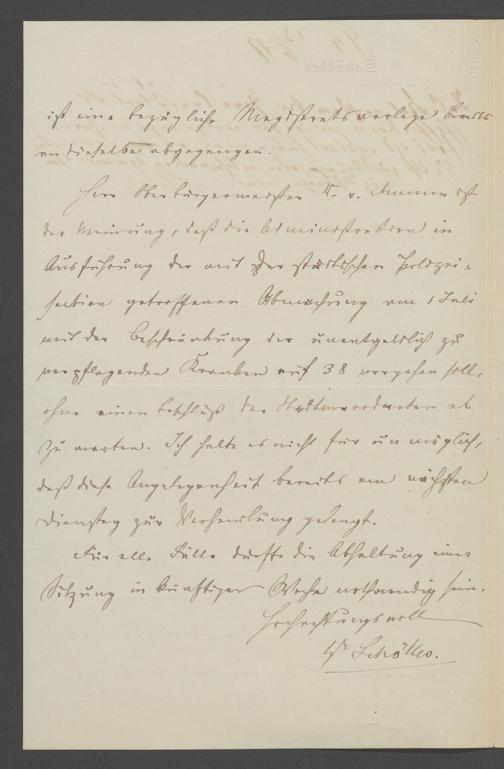 ist eine bezügliche Magistratsvorlage bereits
an dieselbe abgegangen.
Herr Oberbürgermeister Dr. v. Mumm ist
der Meinung, daß die Administration in
Ausführung der mit der städtischen Polizei-
section getroffenen Abmachung am 1 Juli
mit der Beschränkung der unentgeldlich zu
verpflegenden Kranken auf 38 vorgehen soll,
ohne einen Beschluß der Stadtverordneten ab
zu warten. Ich halte es nicht für unmöglich,
daß diese Angelegenheit bereits am nächsten
Dienstag zur Verhandlung gelangt.
Für alle Fälle dürfte die Abhaltung einer
Sitzung in künftiger Woche nothwendig sein.
Hochachtungsvoll
Schölles.